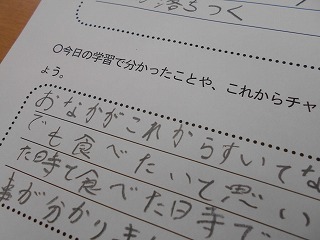 落ちつく
○今日の学習で分かったことや、これからチャ
ょう。
おなかがこれからすいてな
でも食べたいて思い
た時で食べた日寺で
事が分かりま